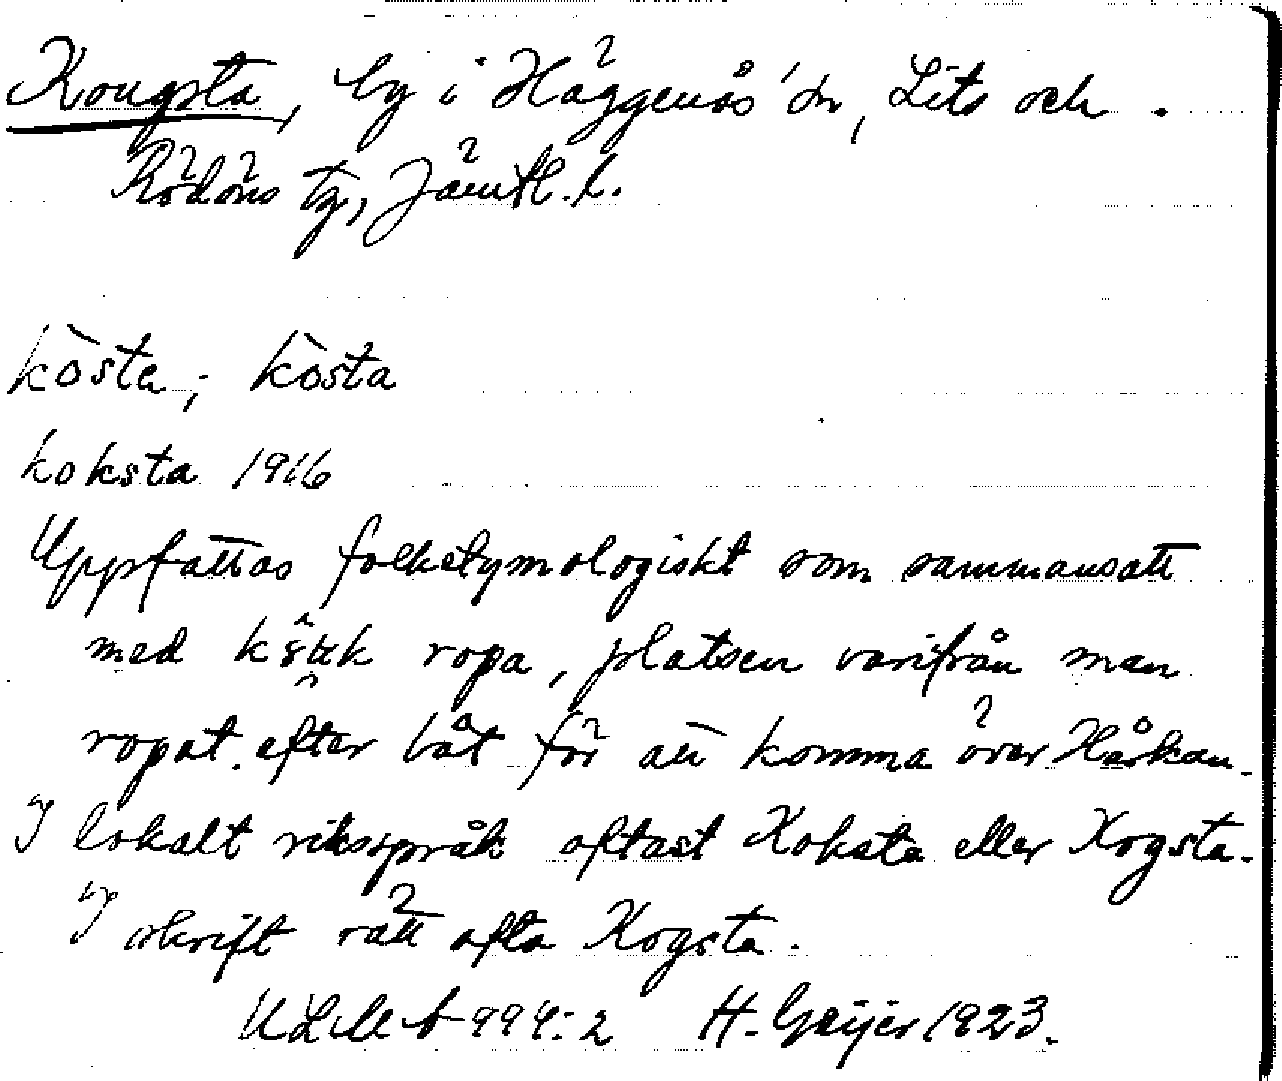 Kougsta, by i Häggenås sn, Lits och
Rödöns tg, Jämtl. l.
kòsta; kòsta
koksta 1916
Uppfattas folketymologiskt som sammansatt
med ropa, platsen varifrån man
ropat efter båt för att komma över Hårkan.
I lokalt riksspråk oftast Koksta eller Kogsta.
I skrift rätt ofta Kogsta.
ULMA 994:2 H. Geijer 1923.